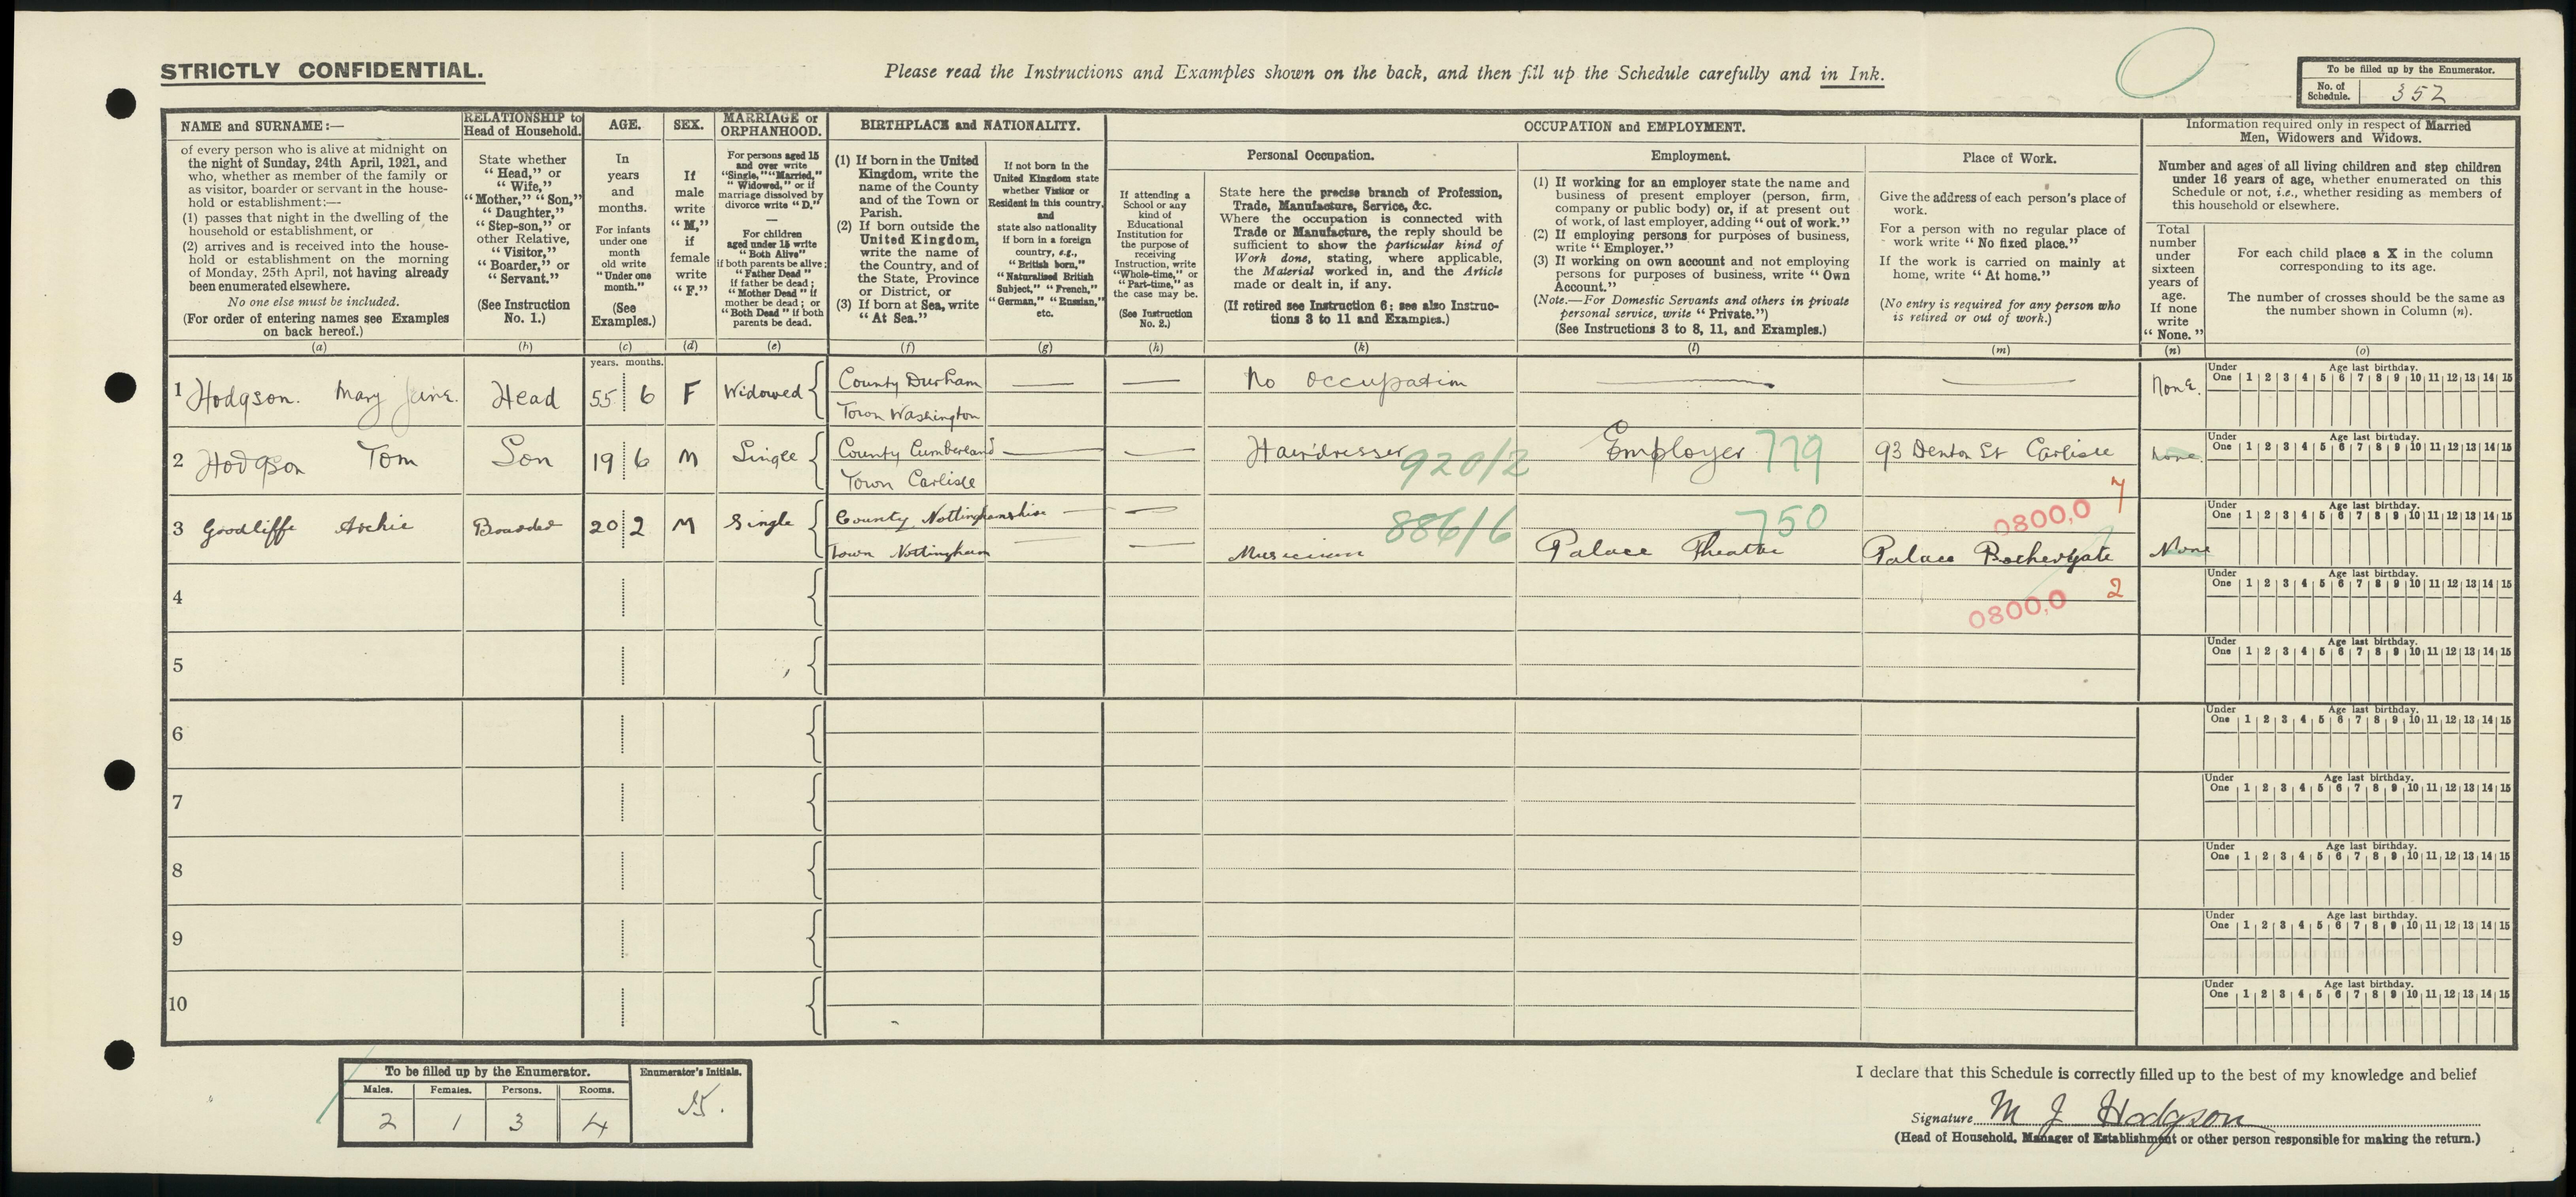 STRICTLY CONFIDENTIAL.
Please read the Instructions and Examples shown on the back, and then fill up the Schedule carefully and in Ink.
To be filled up by the Enumerator.
No. of Schedule. 352
NAME and SURNAME:—
of every person who is alive at midnight on
the night of Sunday, 24th April, 1921, and
who, whether as member of the family or
as visitor, boarder or servant in the house-
hold or establishment:—
(1) passes that night in the dwelling of the
household or establishment, or
(2) arrives and is received into the house-
hold or establishment on the morning
of Monday, 25th April, not having already
been enumerated elsewhere.
No one else must be included.
(For order of entering names see Examples
on back hereof.)
(a)
RELATIONSHIP to
Head of Household.
State whether
"Head," or
"Wife,"
"Mother," "Son,"
"Daughter,"
"Step-son," or
other Relative,
"Visitor,"
"Boarder," or
"Servant."
(See Instruction
No. 1.)
(b)
AGE.
In
years
and
months.
For infants
under one
month
old write
"Under one
month."
(See
Examples.)
(c)
SEX.
If
male
write
"M,"
if
female
write
"F."
(d)
MARRIAGE or
ORPHANHOOD.
For persons aged 15
and over write
"Single," "Married,"
"Widowed," or if
marriage dissolved by
divorce write "D."
—
For children
aged under 15 write
"Both Alive"
if both parents be alive;
"Father Dead"
if father be dead;
"Mother Dead" if
mother be dead; or
"Both Dead" if both
parents be dead.
(e)
BIRTHPLACE and NATIONALITY.
(1) If born in the United
Kingdom, write the
name of the County
and of the Town or
Parish.
(2) If born outside the
United Kingdom,
write the name of
the Country, and of
the State, Province
or District, or
(3) If born at Sea, write
"At Sea."
(f)
If not born in the
United Kingdom state
whether Visitor or
Resident in this country,
and
state also nationality
if born in a foreign
country, e.g.,
"British born,"
"Naturalised British
Subject," "French,"
"German," "Russian,"
etc.
(g)
OCCUPATION and EMPLOYMENT.
If attending a
School or any
kind of
Educational
Institution for
the purpose of
receiving
Instruction, write
"Whole-time," or
"Part-time," as
the case may be.
(See Instruction
No. 2.)
(h)
Personal Occupation.
State here the precise branch of Profession,
Trade, Manufacture, Service, &c.
Where the occupation is connected with
Trade or Manufacture, the reply should be
sufficient to show the particular kind of
Work done, stating, where applicable,
the Material worked in, and the Article
made or dealt in, if any.
(If retired see Instruction 6; see also Instruc-
tions 3 to 11 and Examples.)
(k)
Employment.
(1) If working for an employer state the name and
business of present employer (person, firm,
company or public body) or, if at present out
of work, of last employer, adding "out of work."
(2) If employing persons for purposes of business,
write "Employer."
(3) If working on own account and not employing
persons for purposes of business, write "Own
Account."
(Note.—For Domestic Servants and others in private
personal service, write "Private.")
(See Instructions 3 to 8, 11, and Examples.)
(l)
Place of Work.
Give the address of each person's place of
work.
For a person with no regular place of
work write "No fixed place."
If the work is carried on mainly at
home, write "At home."
(No entry is required for any person who
is retired or out of work.)
(m)
Information required only in respect of Married
Men, Widowers and Widows.
Number and ages of all living children and step children
under 16 years of age, whether enumerated on this
Schedule or not, i.e., whether residing as members of
this household or elsewhere.
Total
number
under
sixteen
years of
age.
If none
write
"None."
(n)
For each child place a X in the column
corresponding to its age.
The number of crosses should be the same as
the number shown in Column (n).
(o)
years. months.
1 Hodgson. Mary Jane. Head 55 6 F Widowed County Durham — — No occupation — — None.
Town Washington
Under One Age last birthday. 1 2 3 4 5 6 7 8 9 10 11 12 13 14 15
2 Hodgson Tom Son 19 6 M Single County Cumberland — — Hairdresser 920/2 Employer 779 93 Denton St Carlisle None.
Town Carlisle
7
0800,0
Under One Age last birthday. 1 2 3 4 5 6 7 8 9 10 11 12 13 14 15
3 Goodliffe Archie Boarder 20 2 M Single County Nottinghamshire — — 886/6 750
Town Nottingham — — Musician Palace Theatre Palace Botchergate None
2
0800,0
Under One Age last birthday. 1 2 3 4 5 6 7 8 9 10 11 12 13 14 15
4
Under One Age last birthday. 1 2 3 4 5 6 7 8 9 10 11 12 13 14 15
5
Under One Age last birthday. 1 2 3 4 5 6 7 8 9 10 11 12 13 14 15
6
Under One Age last birthday. 1 2 3 4 5 6 7 8 9 10 11 12 13 14 15
7
Under One Age last birthday. 1 2 3 4 5 6 7 8 9 10 11 12 13 14 15
8
Under One Age last birthday. 1 2 3 4 5 6 7 8 9 10 11 12 13 14 15
9
Under One Age last birthday. 1 2 3 4 5 6 7 8 9 10 11 12 13 14 15
10
Under One Age last birthday. 1 2 3 4 5 6 7 8 9 10 11 12 13 14 15
To be filled up by the Enumerator.
Males. Females. Persons. Rooms.
2 1 3 4
Enumerator's Initials.
I declare that this Schedule is correctly filled up to the best of my knowledge and belief
Signature M J Hodgson
(Head of Household, Manager of Establishment or other person responsible for making the return.)